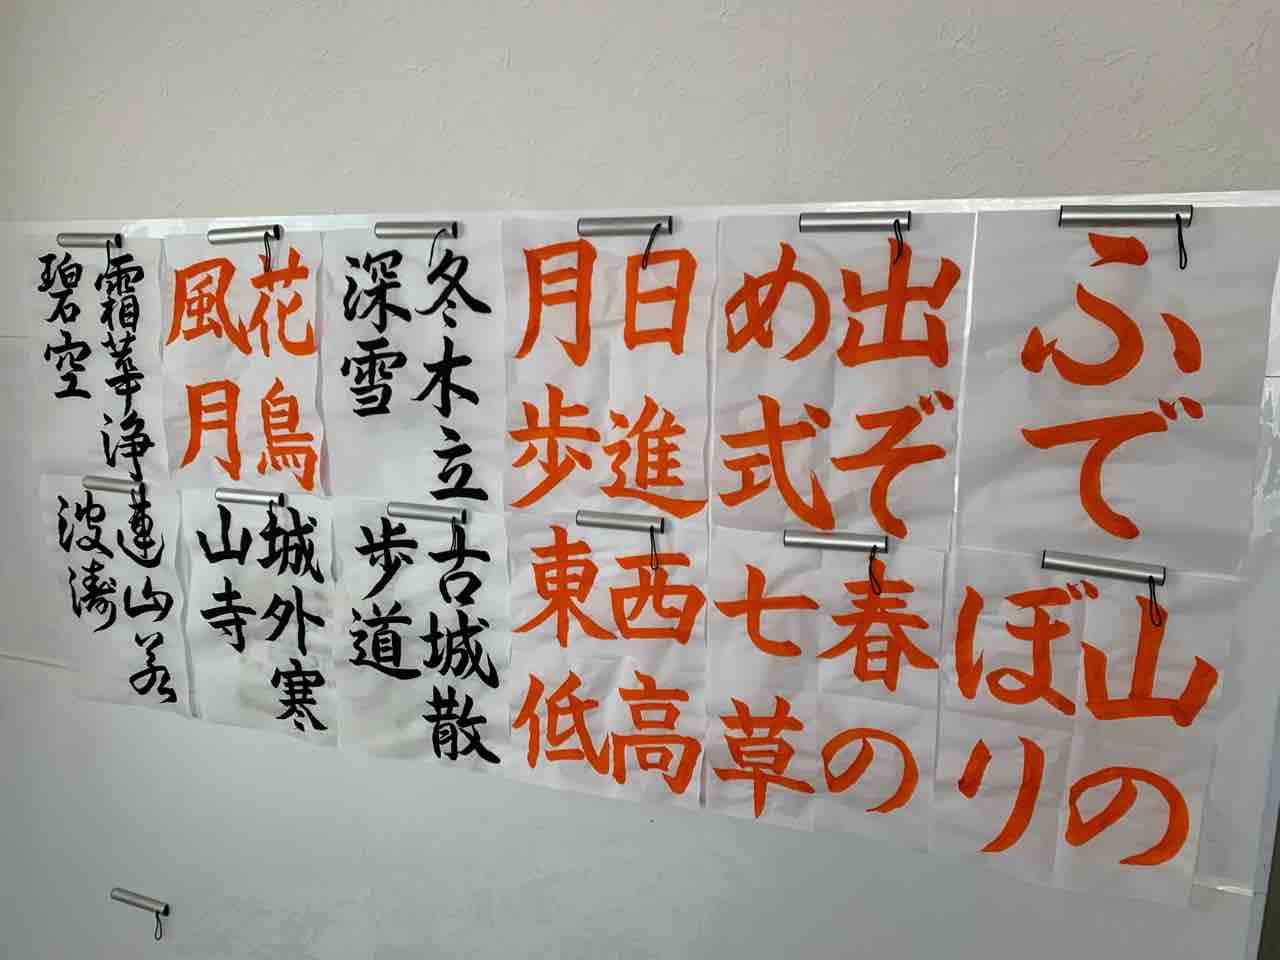 ふで
出ぞ
め式
日進
月歩
冬木立
深雪
花鳥
風月
霜華浄
碧空
山の
ぼり
春の
七草
西高
東低
古城散
歩道
城外寒
山寺
連山若
波濤